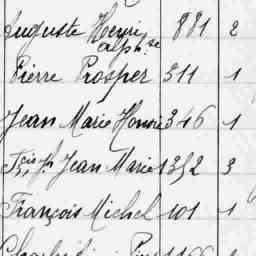 Auguste Henri 881 2
alph.se
Pierre Prosper 311 1
Jean Marie Honoré 346 1
Fçois Jh Jean Marie 1352 3
François Michel 101 1